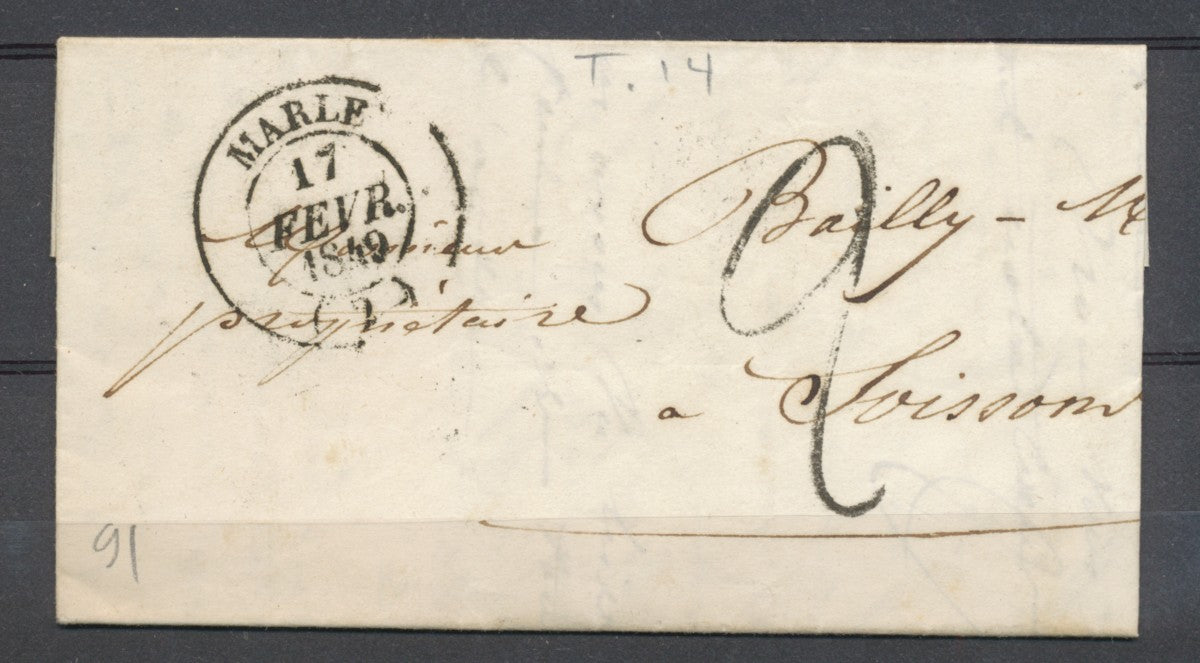 T. 14
MARLE
17
FEVR.
1849
(2)
Monsieur Bailly - M
propriétaire
2
a Soissons
91